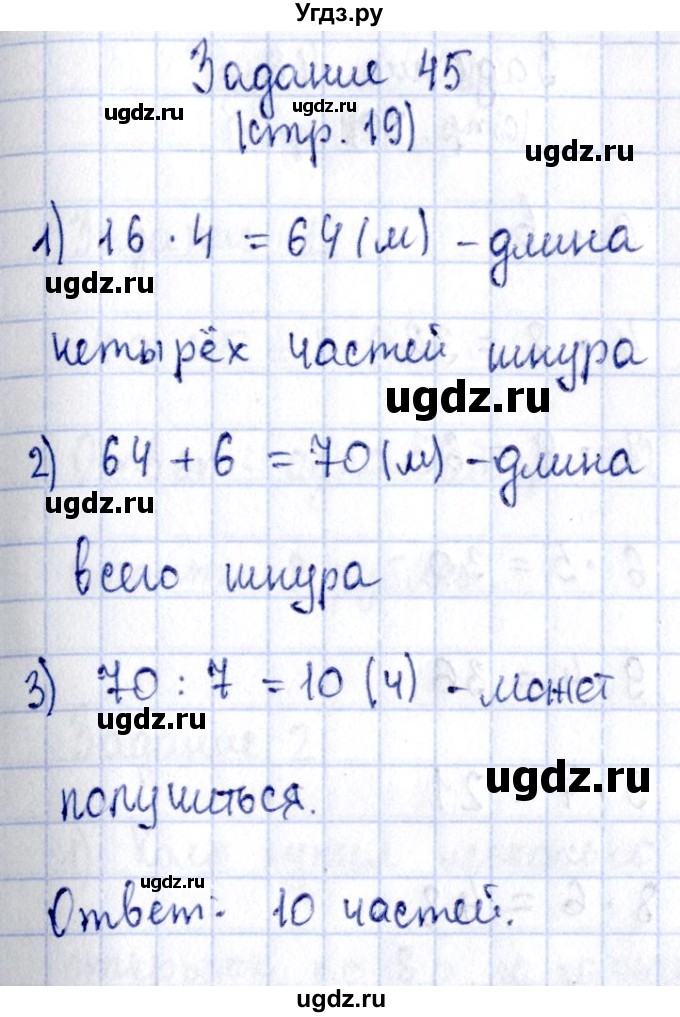 Угдз.ру
Задание 45
ugdz.ru ugdz.ru
(стр. 19)
ugdz.ru
1) 16 · 4 = 64 (м) - длина
ugdz.ru
четырёх частей шнура
ugdz.ru
2) 64 + 6 = 70 (м) - длина
ugdz.ru
всего шнура
3) 70 : 7 = 10 (ч) - может
ugdz.ru
ugdz.ru
получиться.
ugdz.ru
Ответ: 10 частей.
ugdz.ru